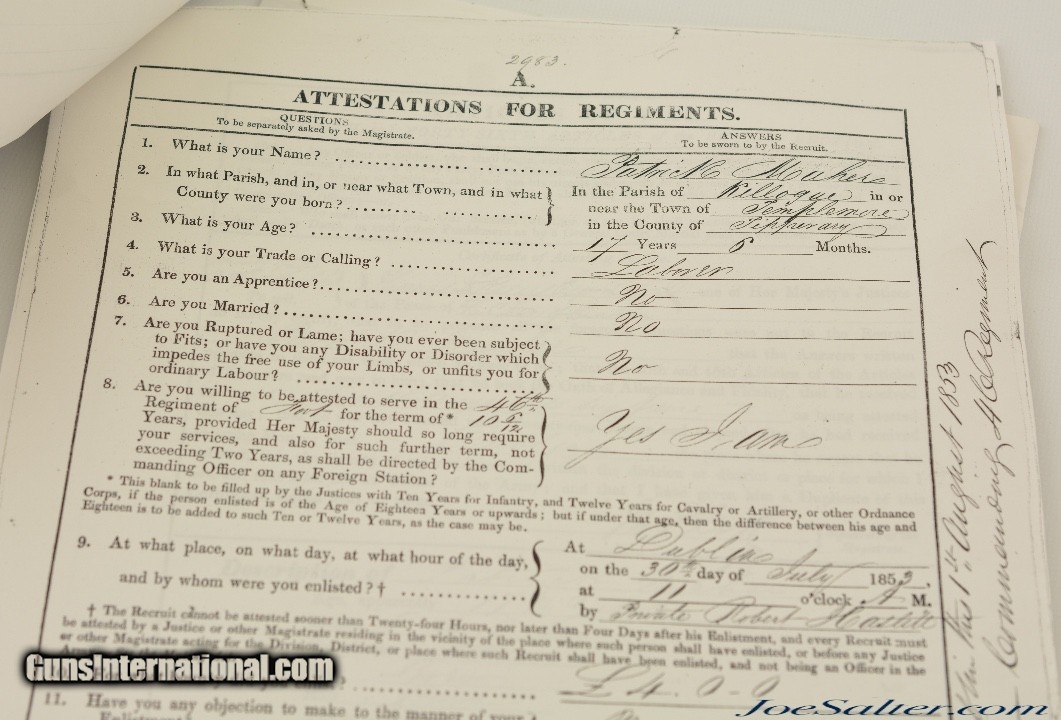 2983.
A.
ATTESTATIONS FOR REGIMENTS.
QUESTIONS
To be separately asked by the Magistrate.
ANSWERS
To be sworn to by the Recruit.
1. What is your Name?
Patrick
2. In what Parish, and in, or near what Town, and in what
County were you born?
In the Parish of in or
near the Town of Templemore
in the County of Tipperary
3. What is your Age?
17 Years 6 Months.
4. What is your Trade or Calling?
Laborer
5. Are you an Apprentice?
No
6. Are you Married?
No
7. Are you Ruptured or Lame; have you ever been subject
to Fits; or have you any Disability or Disorder which
impedes the free use of your Limbs, or unfits you for
ordinary Labour?
No
8. Are you willing to be attested to serve in the 46th
Regiment of Foot for the term of* 10 6/12
Years, provided Her Majesty should so long require
your services, and also for such further term, not
exceeding Two Years, as shall be directed by the Com-
manding Officer on any Foreign Station?
Yes I am
* This blank to be filled up by the Justices with Ten Years for Infantry, and Twelve Years for Cavalry or Artillery, or other Ordnance
Corps, if the person enlisted is of the Age of Eighteen Years or upwards; but if under that age, then the difference between his age and
Eighteen is to be added to such Ten or Twelve Years, as the case may be.
9. At what place, on what day, at what hour of the day,
and by whom were you enlisted?†
At Dublin
on the 30th day of July 1853,
at 11 o'clock A M.
by Private Robert
† The Recruit cannot be attested sooner than Twenty-four Hours, nor later than Four Days after his Enlistment, and every Recruit must
be attested by a Justice or other Magistrate residing in the vicinity of the place where such person shall have enlisted, or before any Justice
or other Magistrate acting for the Division, District, or place where such Recruit shall have been enlisted, and not being an Officer in the
£4.0-0
11. Have you any objection to make to the manner of your
Enlistment?
this 1st August 1853
Commanding 46 Regiment
GunsInternational.com
JoeSalter.com